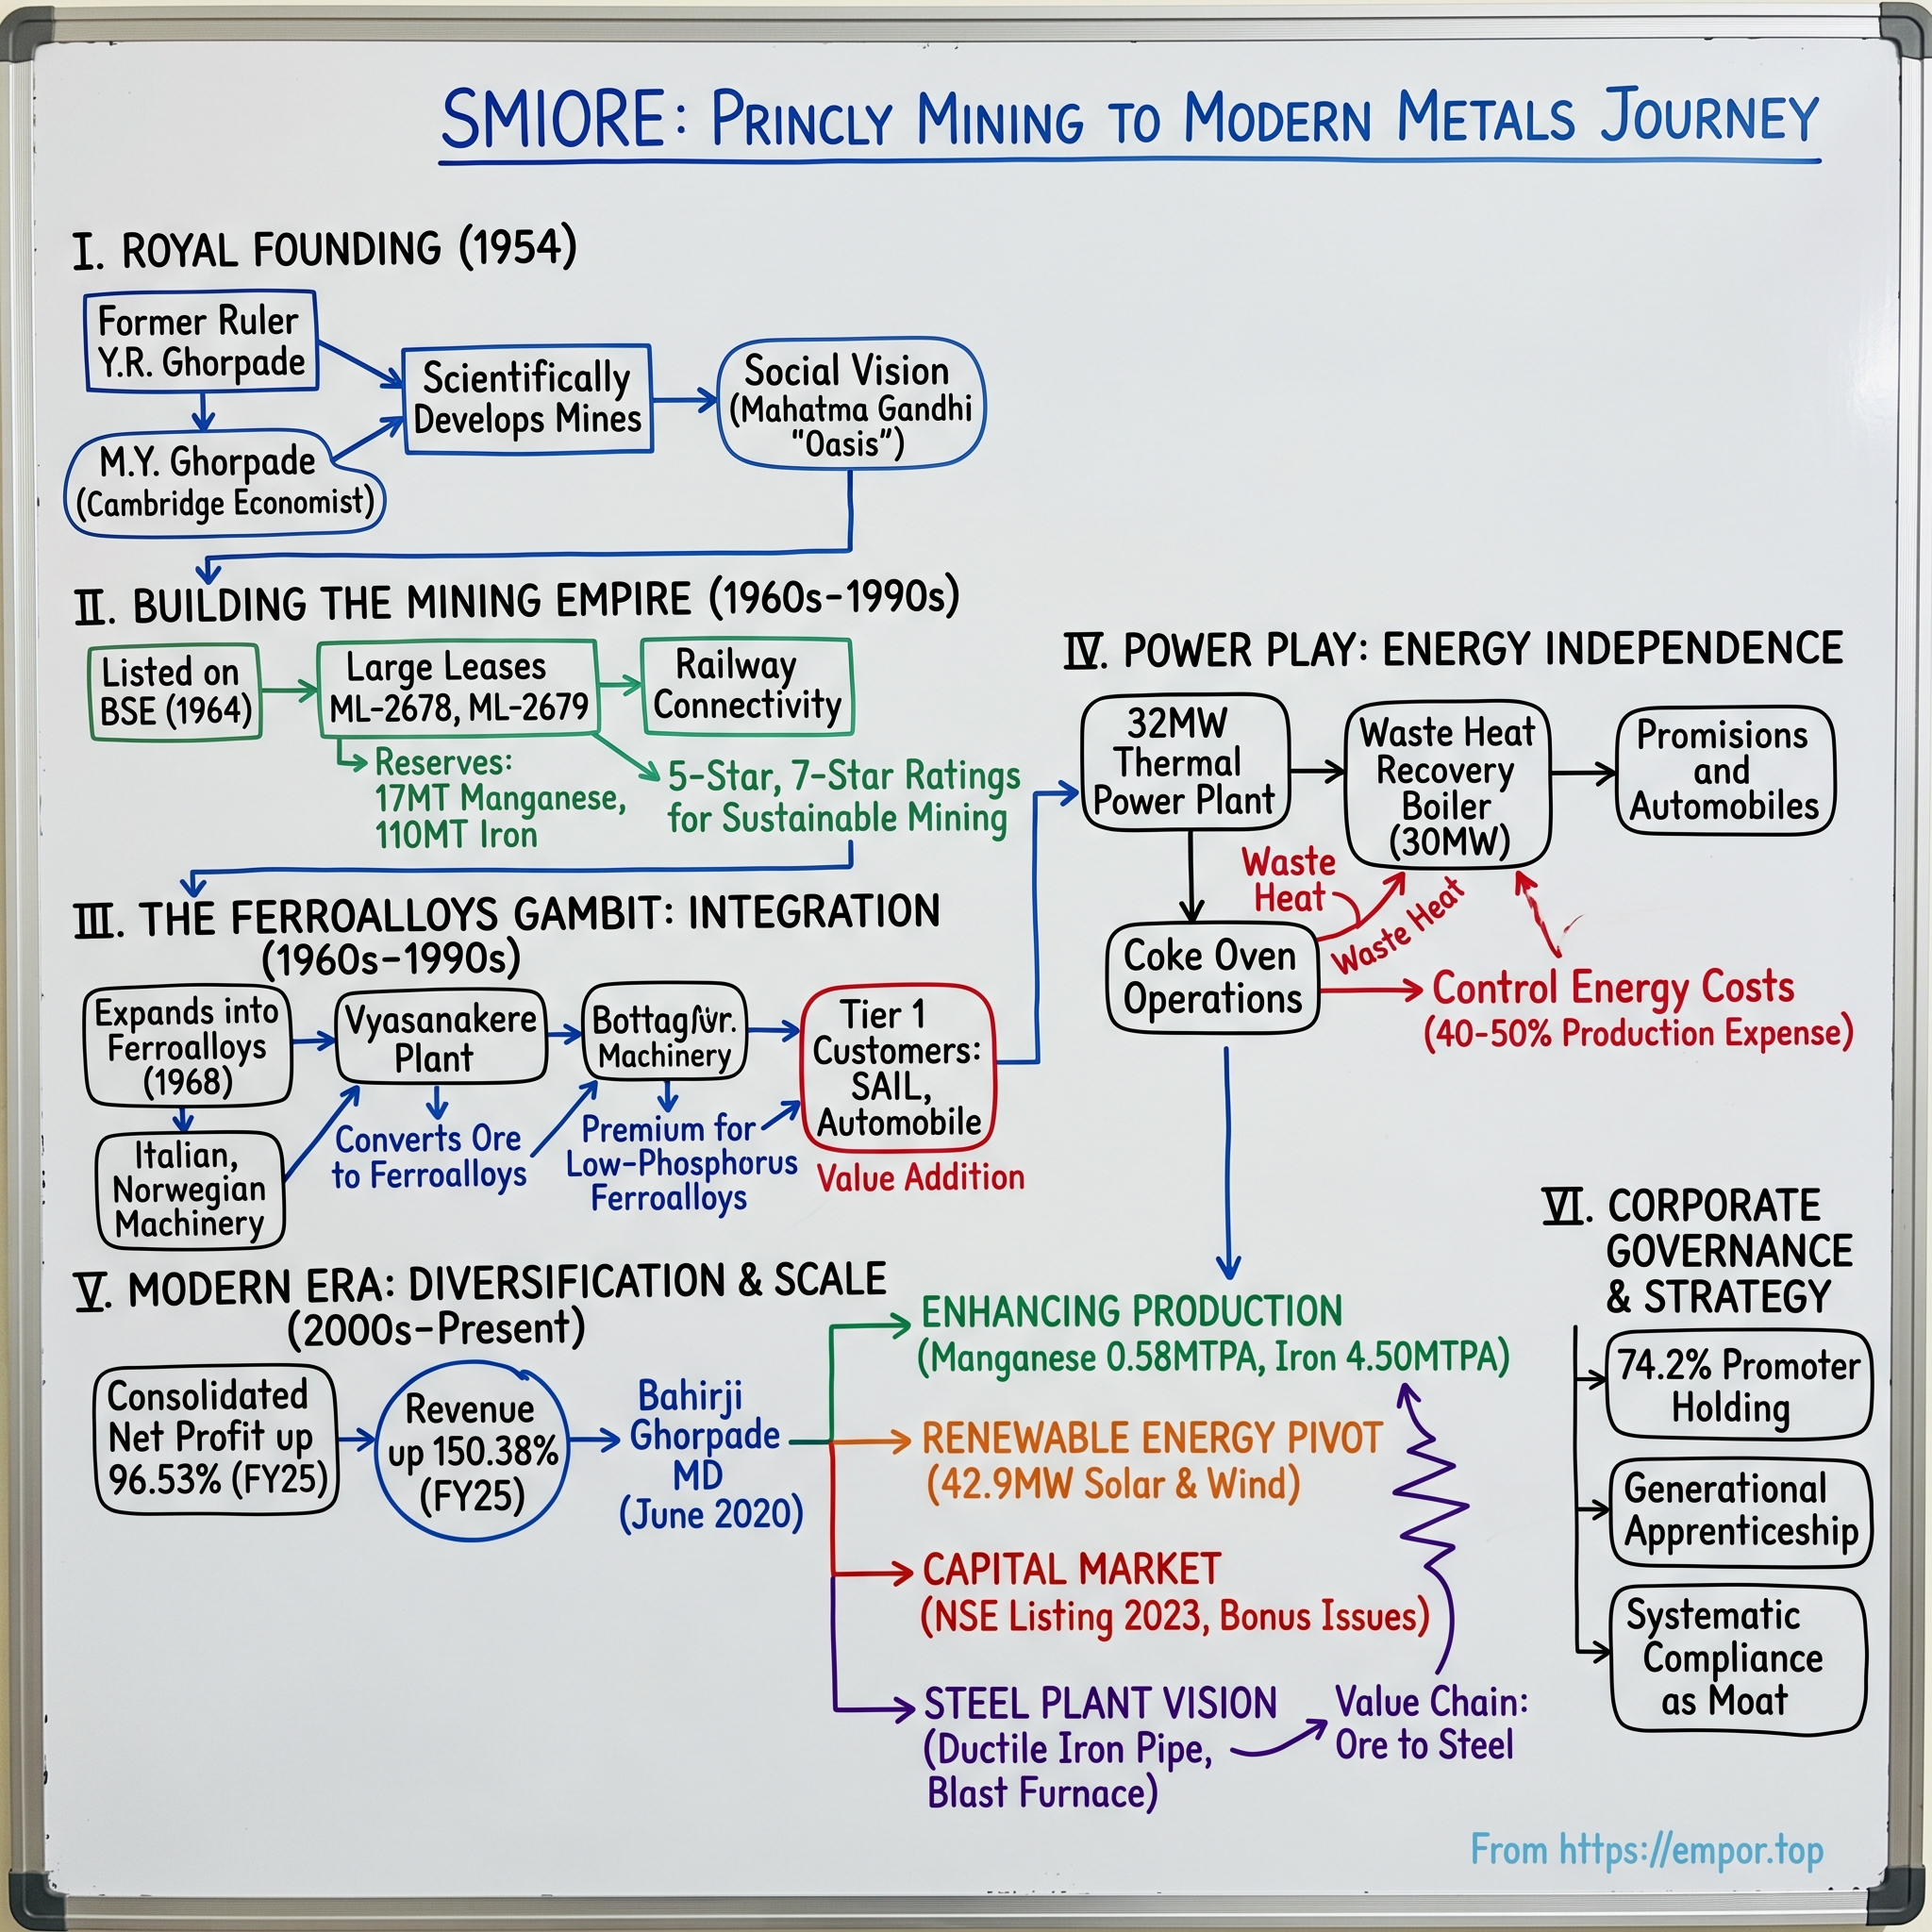 SMIORE: PRINCLY MINING TO MODERN METALS JOURNEY
I. ROYAL FOUNDING (1954)
Former Ruler
Y.R. Ghorpade
M.Y. Ghorpade
(Cambridge Economist)
Scientifically
Develops Mines
Social Vision
(Mahatma Gandhi
"Oasis")
II. BUILDING THE MINING EMPIRE (1960s-1990s)
Listed on
BSE (1964)
Large Leases
ML-2678, ML-2679
Railway
Connectivity
Reserves:
17MT Manganese,
110MT Iron
5-Star, 7-Star Ratings
for Sustainable Mining
III. THE FERROALLOYS GAMBIT: INTEGRATION
(1960s-1990s)
Expands into
Ferroalloys
(1968)
Italian,
Norwegian
Machinery
Vyasanakere
Plant
Converts Ore
to Ferroalloys
Machinery
Premium for
Low-Phosphorus
Ferroalloys
Tier 1
Customers:
SAIL,
Automobile
Value Addition
IV. POWER PLAY: ENERGY INDEPENDENCE
32MW
Thermal
Power Plant
Waste Heat
Recovery
Boiler
(30MW)
Promisions
and
Automobiles
Waste
Heat
Waste Heat
Coke Oven
Operations
Control Energy Costs
(40-50% Production Expense)
V. MODERN ERA: DIVERSIFICATION & SCALE
(2000s-Present)
Consolidated
Net Profit up
96.53% (FY25)
Revenue
up 150.38%
(FY25)
Bahirji
Ghorpade
MD
(June 2020)
ENHANCING PRODUCTION
(Manganese 0.58MTPA, Iron 4.50MTPA)
RENEWABLE ENERGY PIVOT
(42.9MW Solar & Wind)
CAPITAL MARKET
(NSE Listing 2023, Bonus Issues)
STEEL PLANT VISION
(Ductile Iron Pipe,
Blast Furnace)
Value Chain:
Ore to Steel
VI. CORPORATE
GOVERNANCE
& STRATEGY
74.2% Promoter
Holding
Generational
Apprenticeship
Systematic
Compliance
as Moat
From https://empor.top